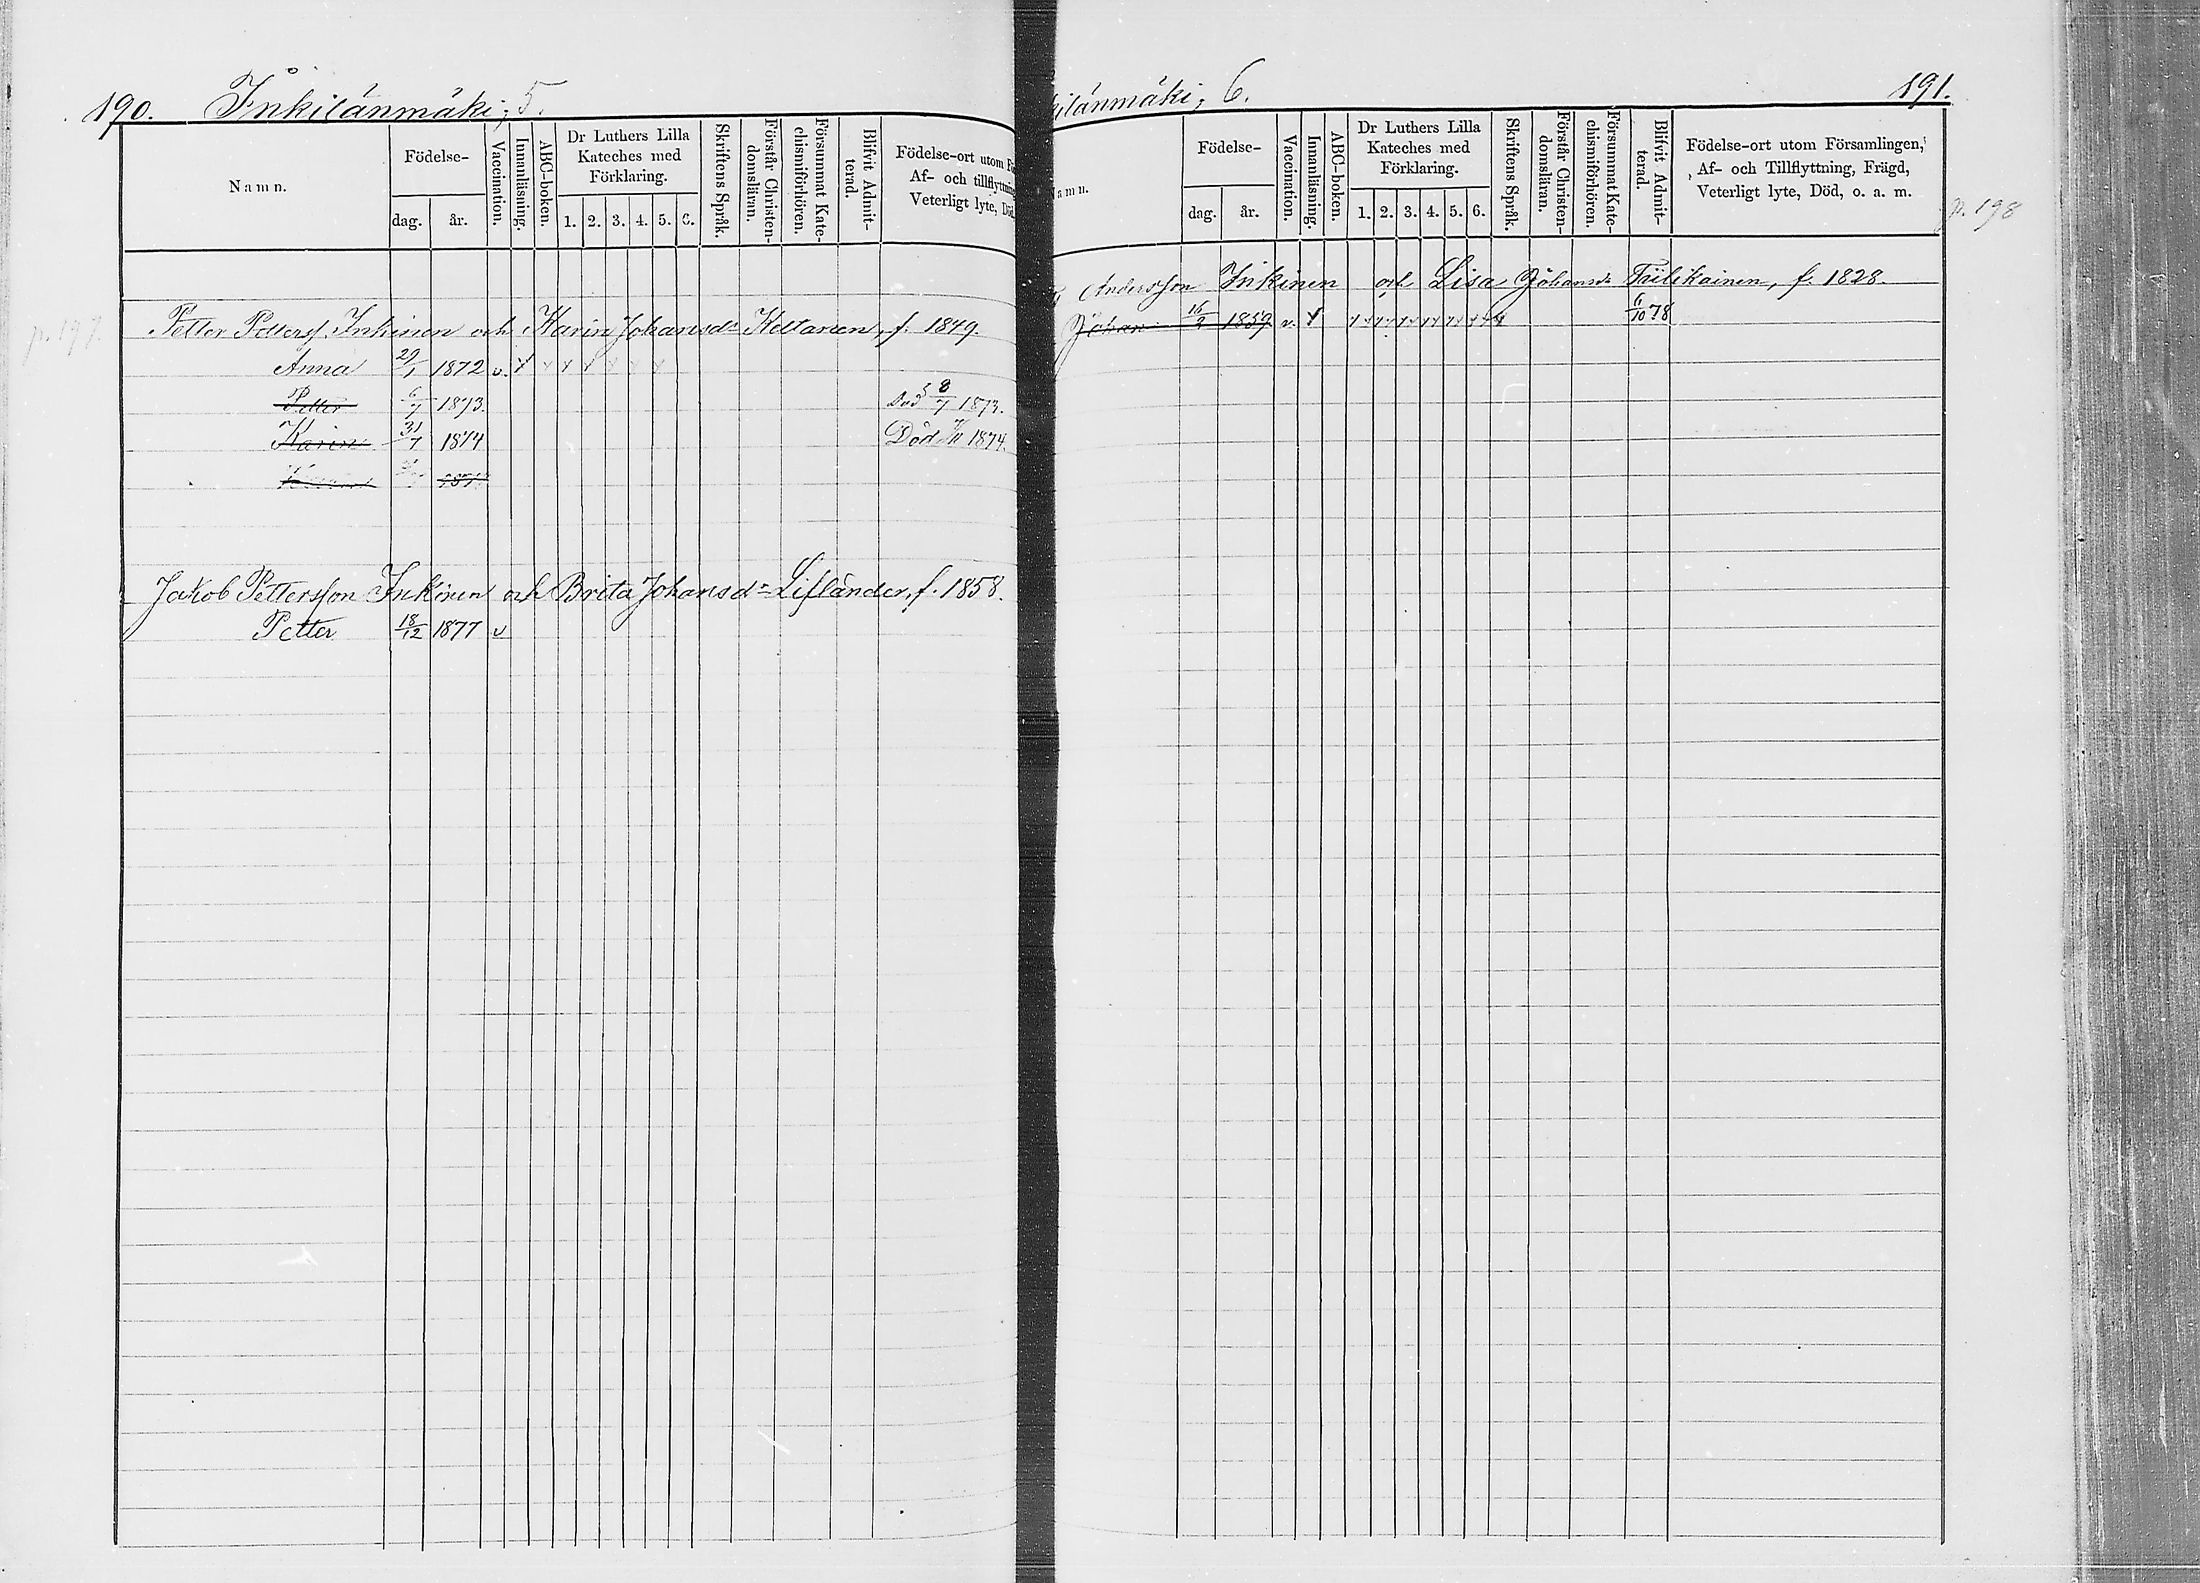 190. Inkilänmäki, 5.
Namn.
Födelse-
dag. år.
Vaccination.
Innanläsning.
ABC-boken.
Dr Luthers Lilla
Kateches med
Förklaring.
1. 2. 3. 4. 5. 6.
Skriftens Språk.
Förstår Christen-
domsläran.
Försummat Kate-
chismiförhören.
Blifvit Admit-
terad.
Födelse-ort utom
Af- och tillflyttning
Veterligt lyte, Död
Petter Petterss. Inkinen och Karin Johansdr Keltanen, f. 1849.
p. 197.
Anna 29/1 1872 v.
Petter 6/7 1873. Död 8/7 1873.
Karin 31/7 1874 Död 1874.
Jakob Pettersson Inkinen och Brita Johansdr Lifländer, f. 1858.
Petter 18/12 1877 v
kilänmäki, 6. 191.
amn.
Födelse-
dag. år.
Vaccination.
Innanläsning.
ABC-boken.
Dr Luthers Lilla
Kateches med
Förklaring.
1. 2. 3. 4. 5. 6.
Skriftens Språk.
Förstår Christen-
domsläran.
Försummat Kate-
chismiförhören.
Blifvit Admit-
terad.
Födelse-ort utom Församlingen,
Af- och Tillflyttning, Frägd,
Veterligt lyte, Död, o. a. m.
p. 198
Andersson Inkinen och Lisa Johansdr Tiilikainen, f. 1828.
Johan 16/2 1859 v. 6/10 78